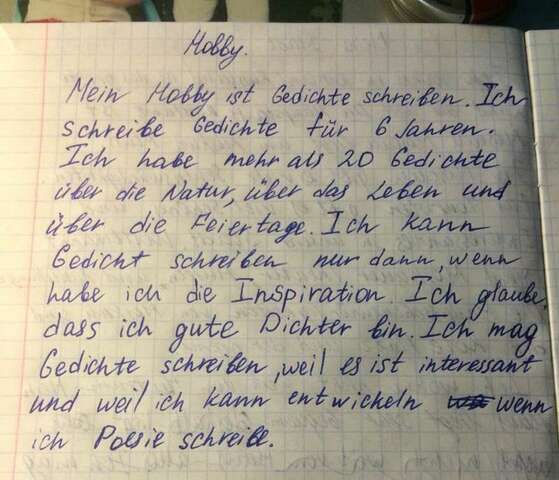 Hobby.
Mein Hobby ist Gedichte schreiben. Ich
schreibe Gedichte für 6 Jahren.
Ich habe mehr als 20 Gedichte
über die Natur, über das Leben und
über die Feiertage. Ich kann
Gedicht schreiben nur dann, wenn
habe ich die Inspiration. Ich glaube
dass ich gute Dichter bin. Ich mag
Gedichte schreiben, weil es ist interessant
und weil ich kann entwickeln wenn
ich Poesie schreibe.